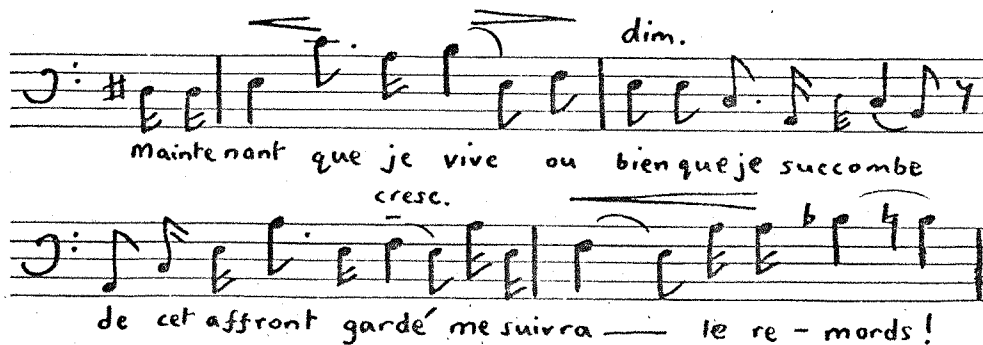 dim.
Maintenant que je vive ou bien que je succombe
cresc.
de cet affront gardé me suivra — le re - mords !